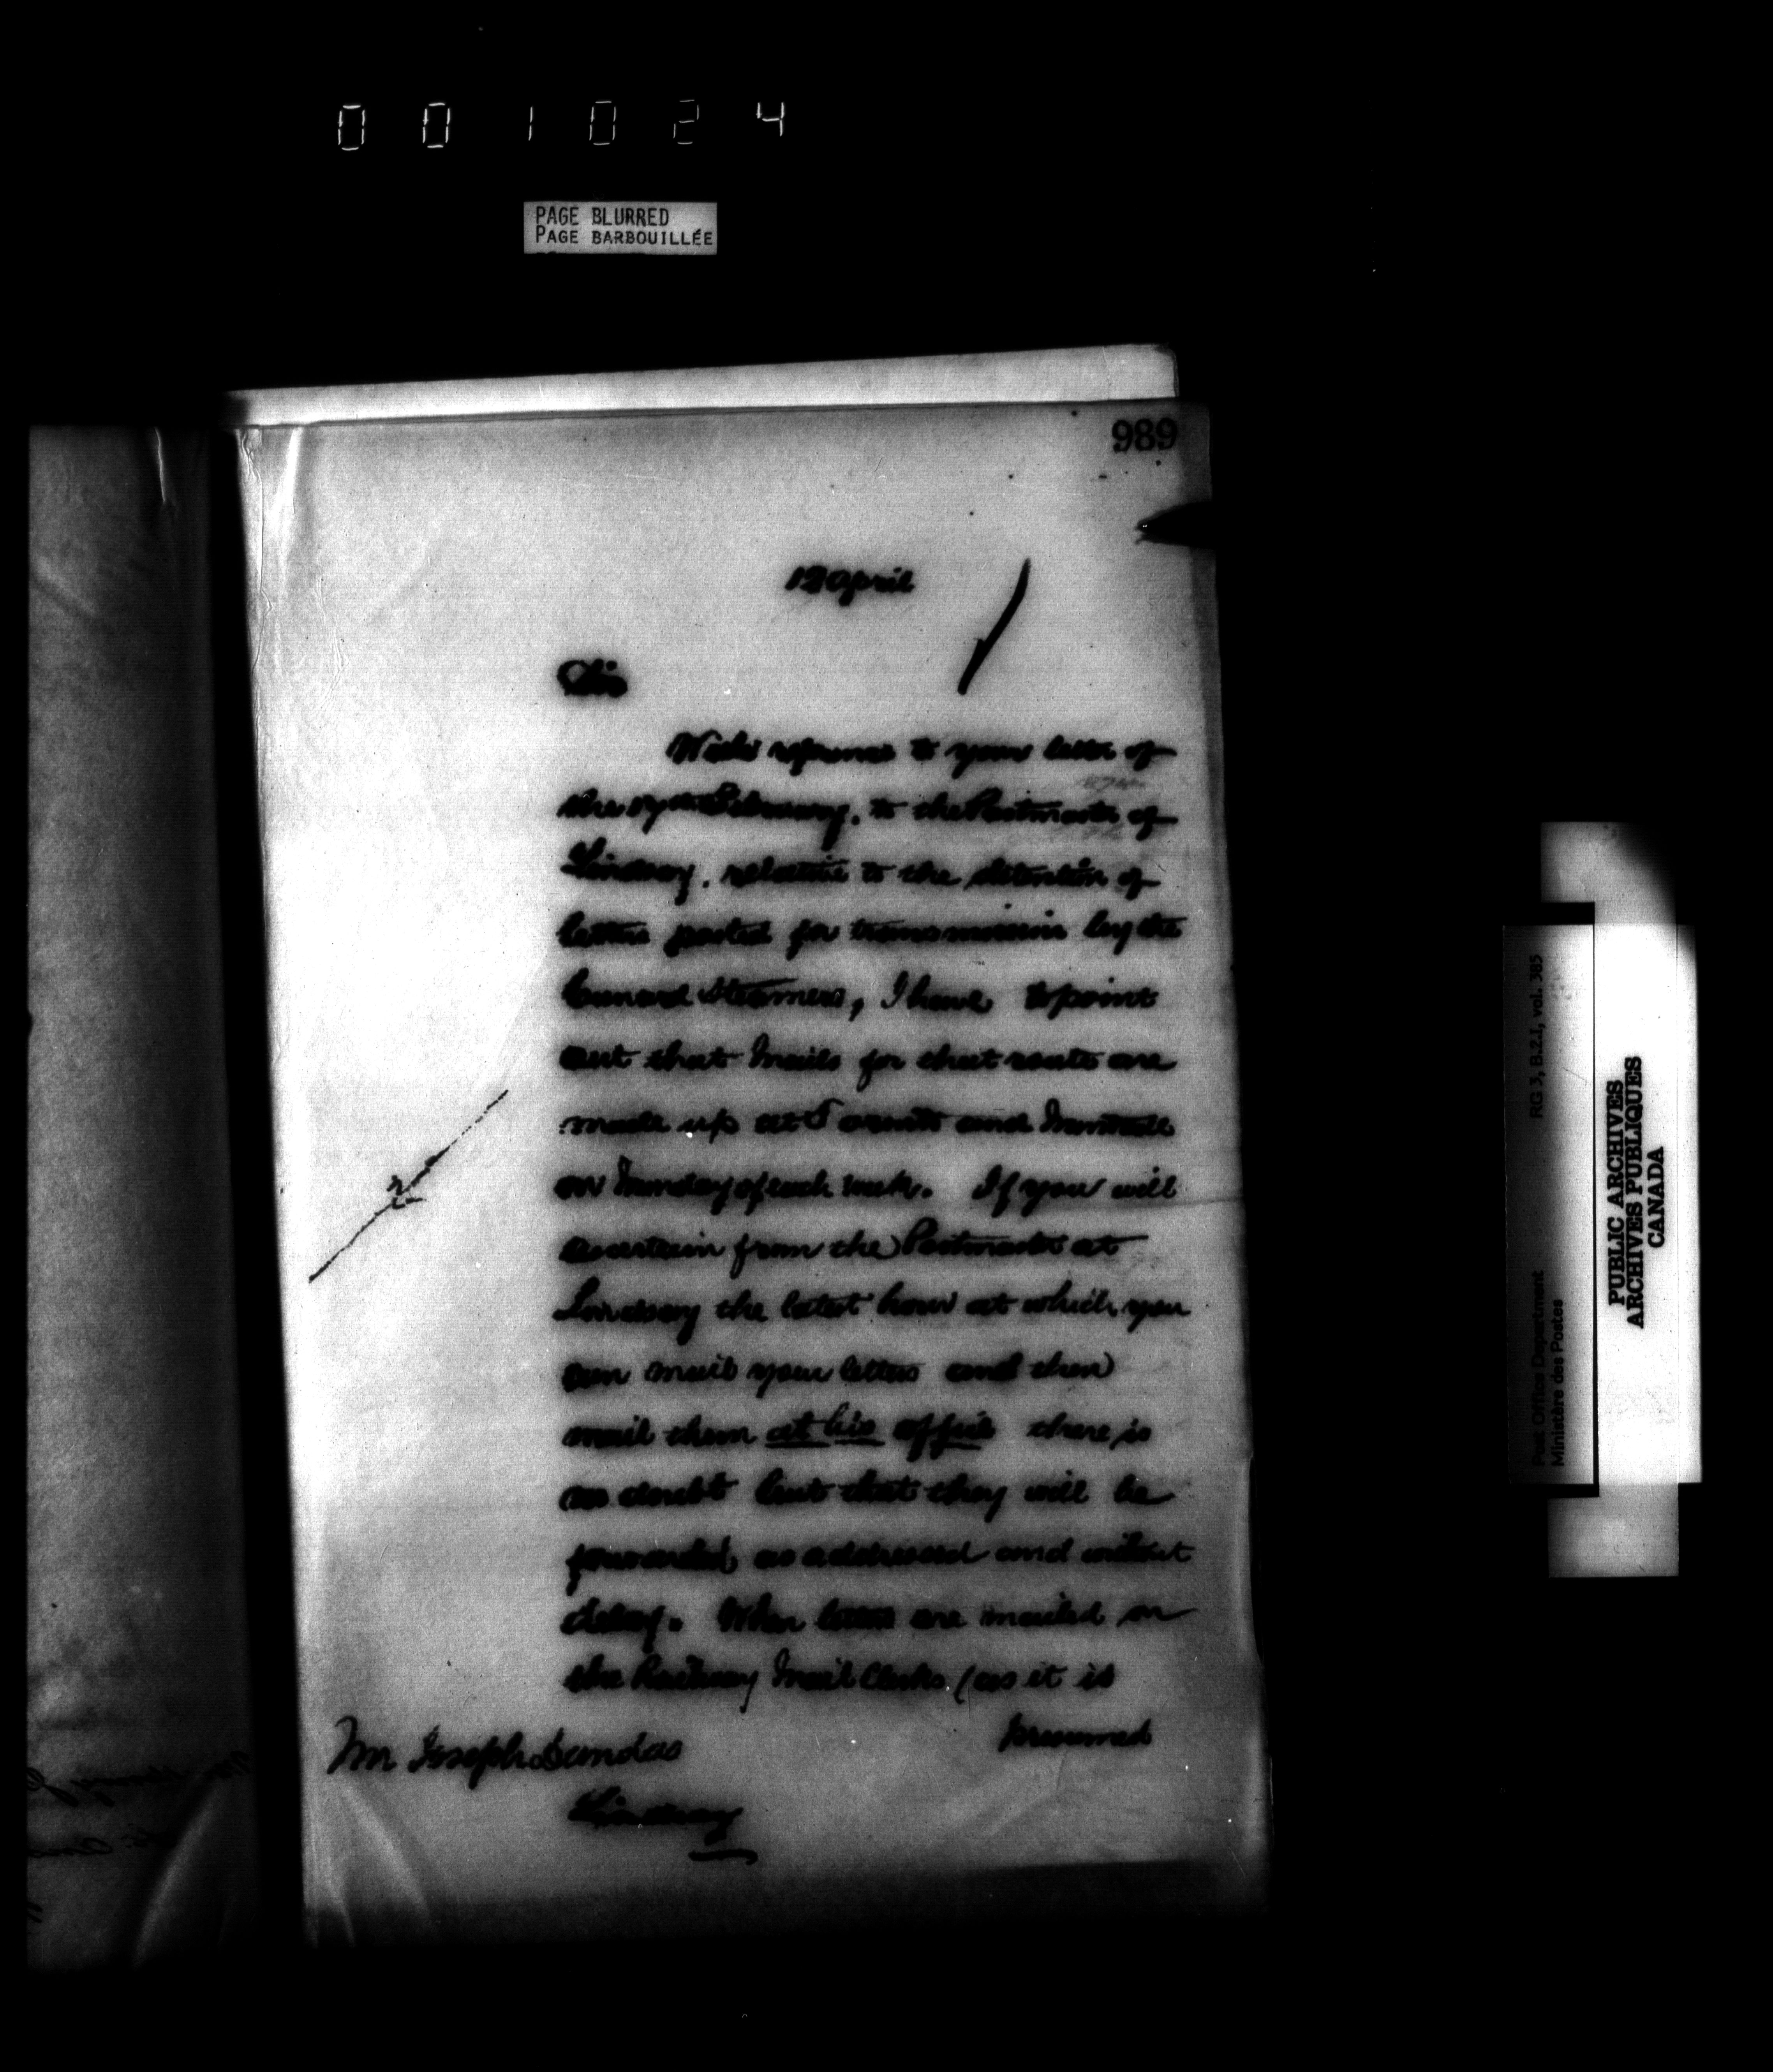 001024
PAGE BLURRED
PAGE BARBOUILLÉE
989
12 April
Sir
With reference to your letter of
the 17th February, to the Postmaster of
Lindsay, relative to the detention of
letters posted for transmission by the
Cunard Steamers, I have to point
out that Mails for that route are
made up at Toronto and Montreal
on Monday of each week. If you will
ascertain from the Postmaster at
Lindsay the latest hour at which you
can mail your letters and then
mail them at his office there is
no doubt but that they will be
forwarded, as addressed and without
delay. When letters are mailed on
the Railway Mail Clerks, (as it is
presumed
Mr Joseph Dundas
Lindsay
RG 3, B.2.1, vol. 385
Post Office Department
Ministère des Postes
PUBLIC ARCHIVES
ARCHIVES PUBLIQUES
CANADA